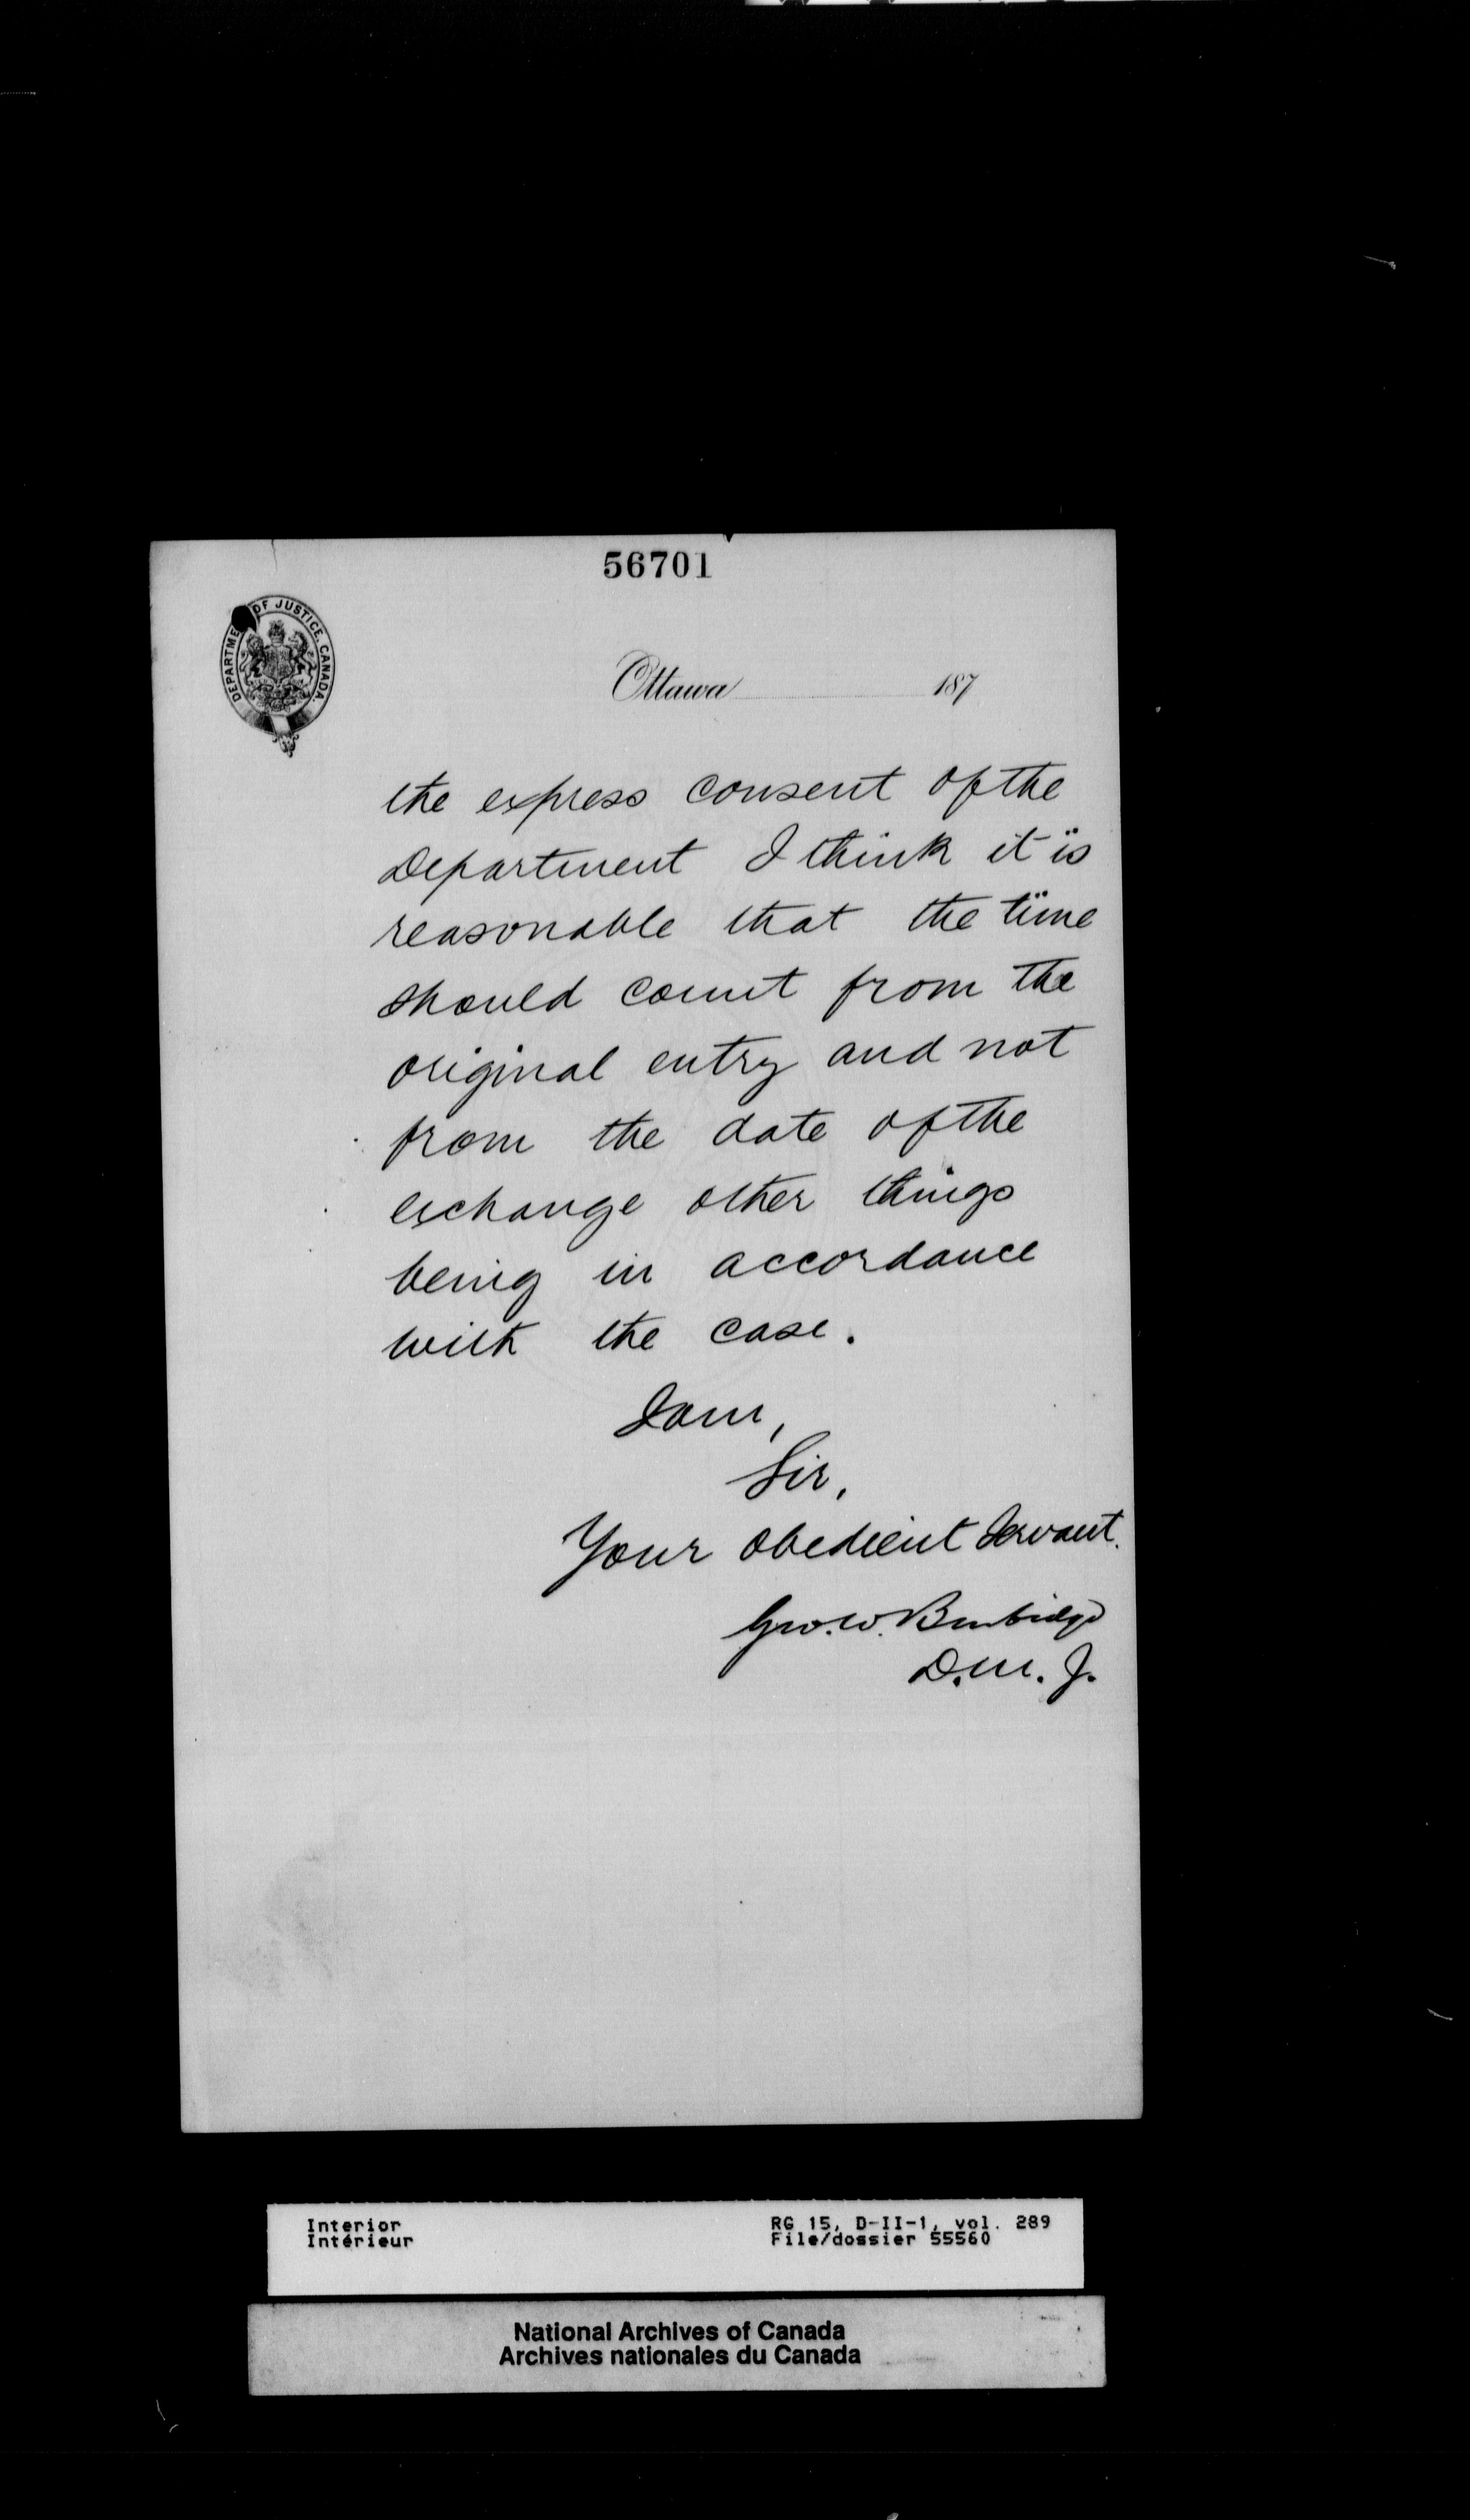 56701
DEPARTME OF JUSTICE, CANADA.
Ottawa 187
the express consent of the
Department I think it is
reasonable that the time
should count from the
original entry and not
from the date of the
exchange other things
being in accordance
with the case.
I am,
Sir,
Your obedient Servant.
Geo. W. Burbidge
D.M.J.
Interior
Intérieur
RG 15, D-II-1, vol. 289
File/dossier 55560
National Archives of Canada
Archives nationales du Canada